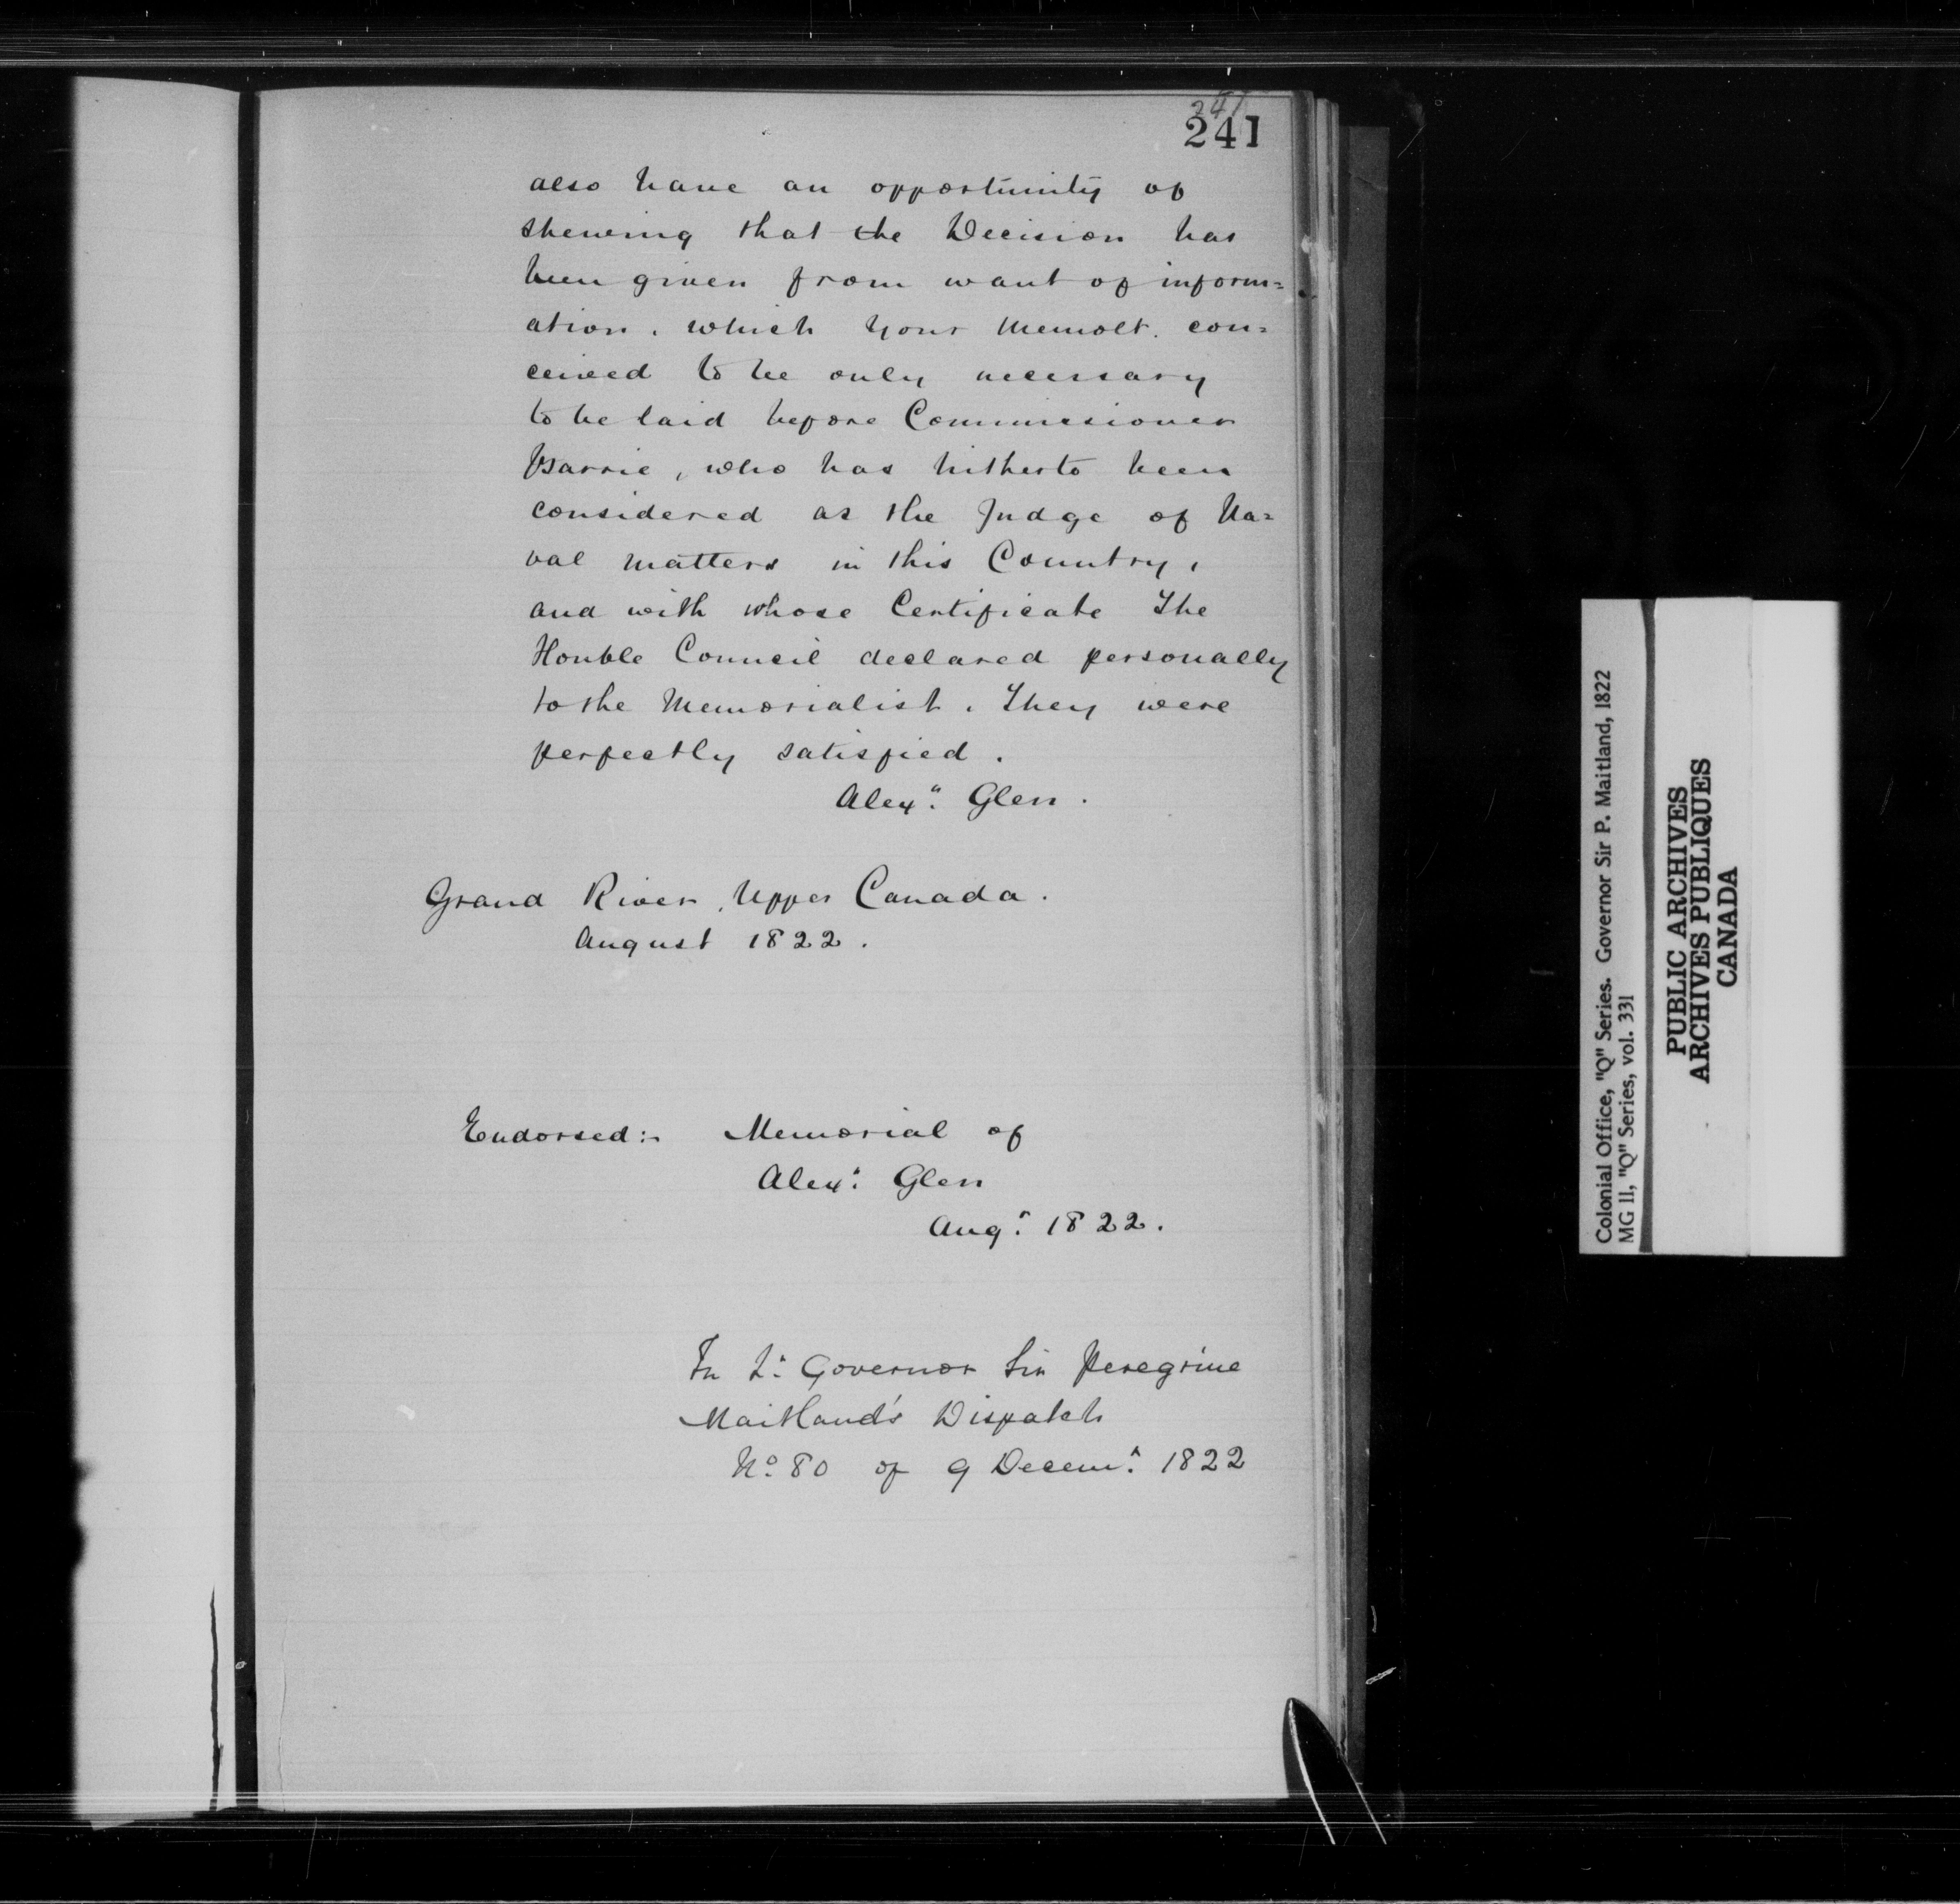 241
241
also have an opportunity of
shewing that the Decision has
been given from want of inform=
ation, which your Memolt. con=
ceived to be only necessary
to be laid before Commissioner
Barrie, who has hitherto been
considered as the Judge of Na=
val matters in this Country,
and with whose Certificate The
Honble Council declared personally
to the Memorialist. They were
perfectly satisfied.
Alexr. Glen.
Grand River, Upper Canada.
August 1822.
Endorsed:- Memorial of
Alexr. Glen
Augt. 1822.
In Lt. Governor Sir Peregrine
Maitland's Dispatch
No. 80 of 9 Decemr. 1822
Colonial Office, "Q" Series. Governor Sir P. Maitland, 1822
MG 11, "Q" Series, vol. 331
PUBLIC ARCHIVES
ARCHIVES PUBLIQUES
CANADA